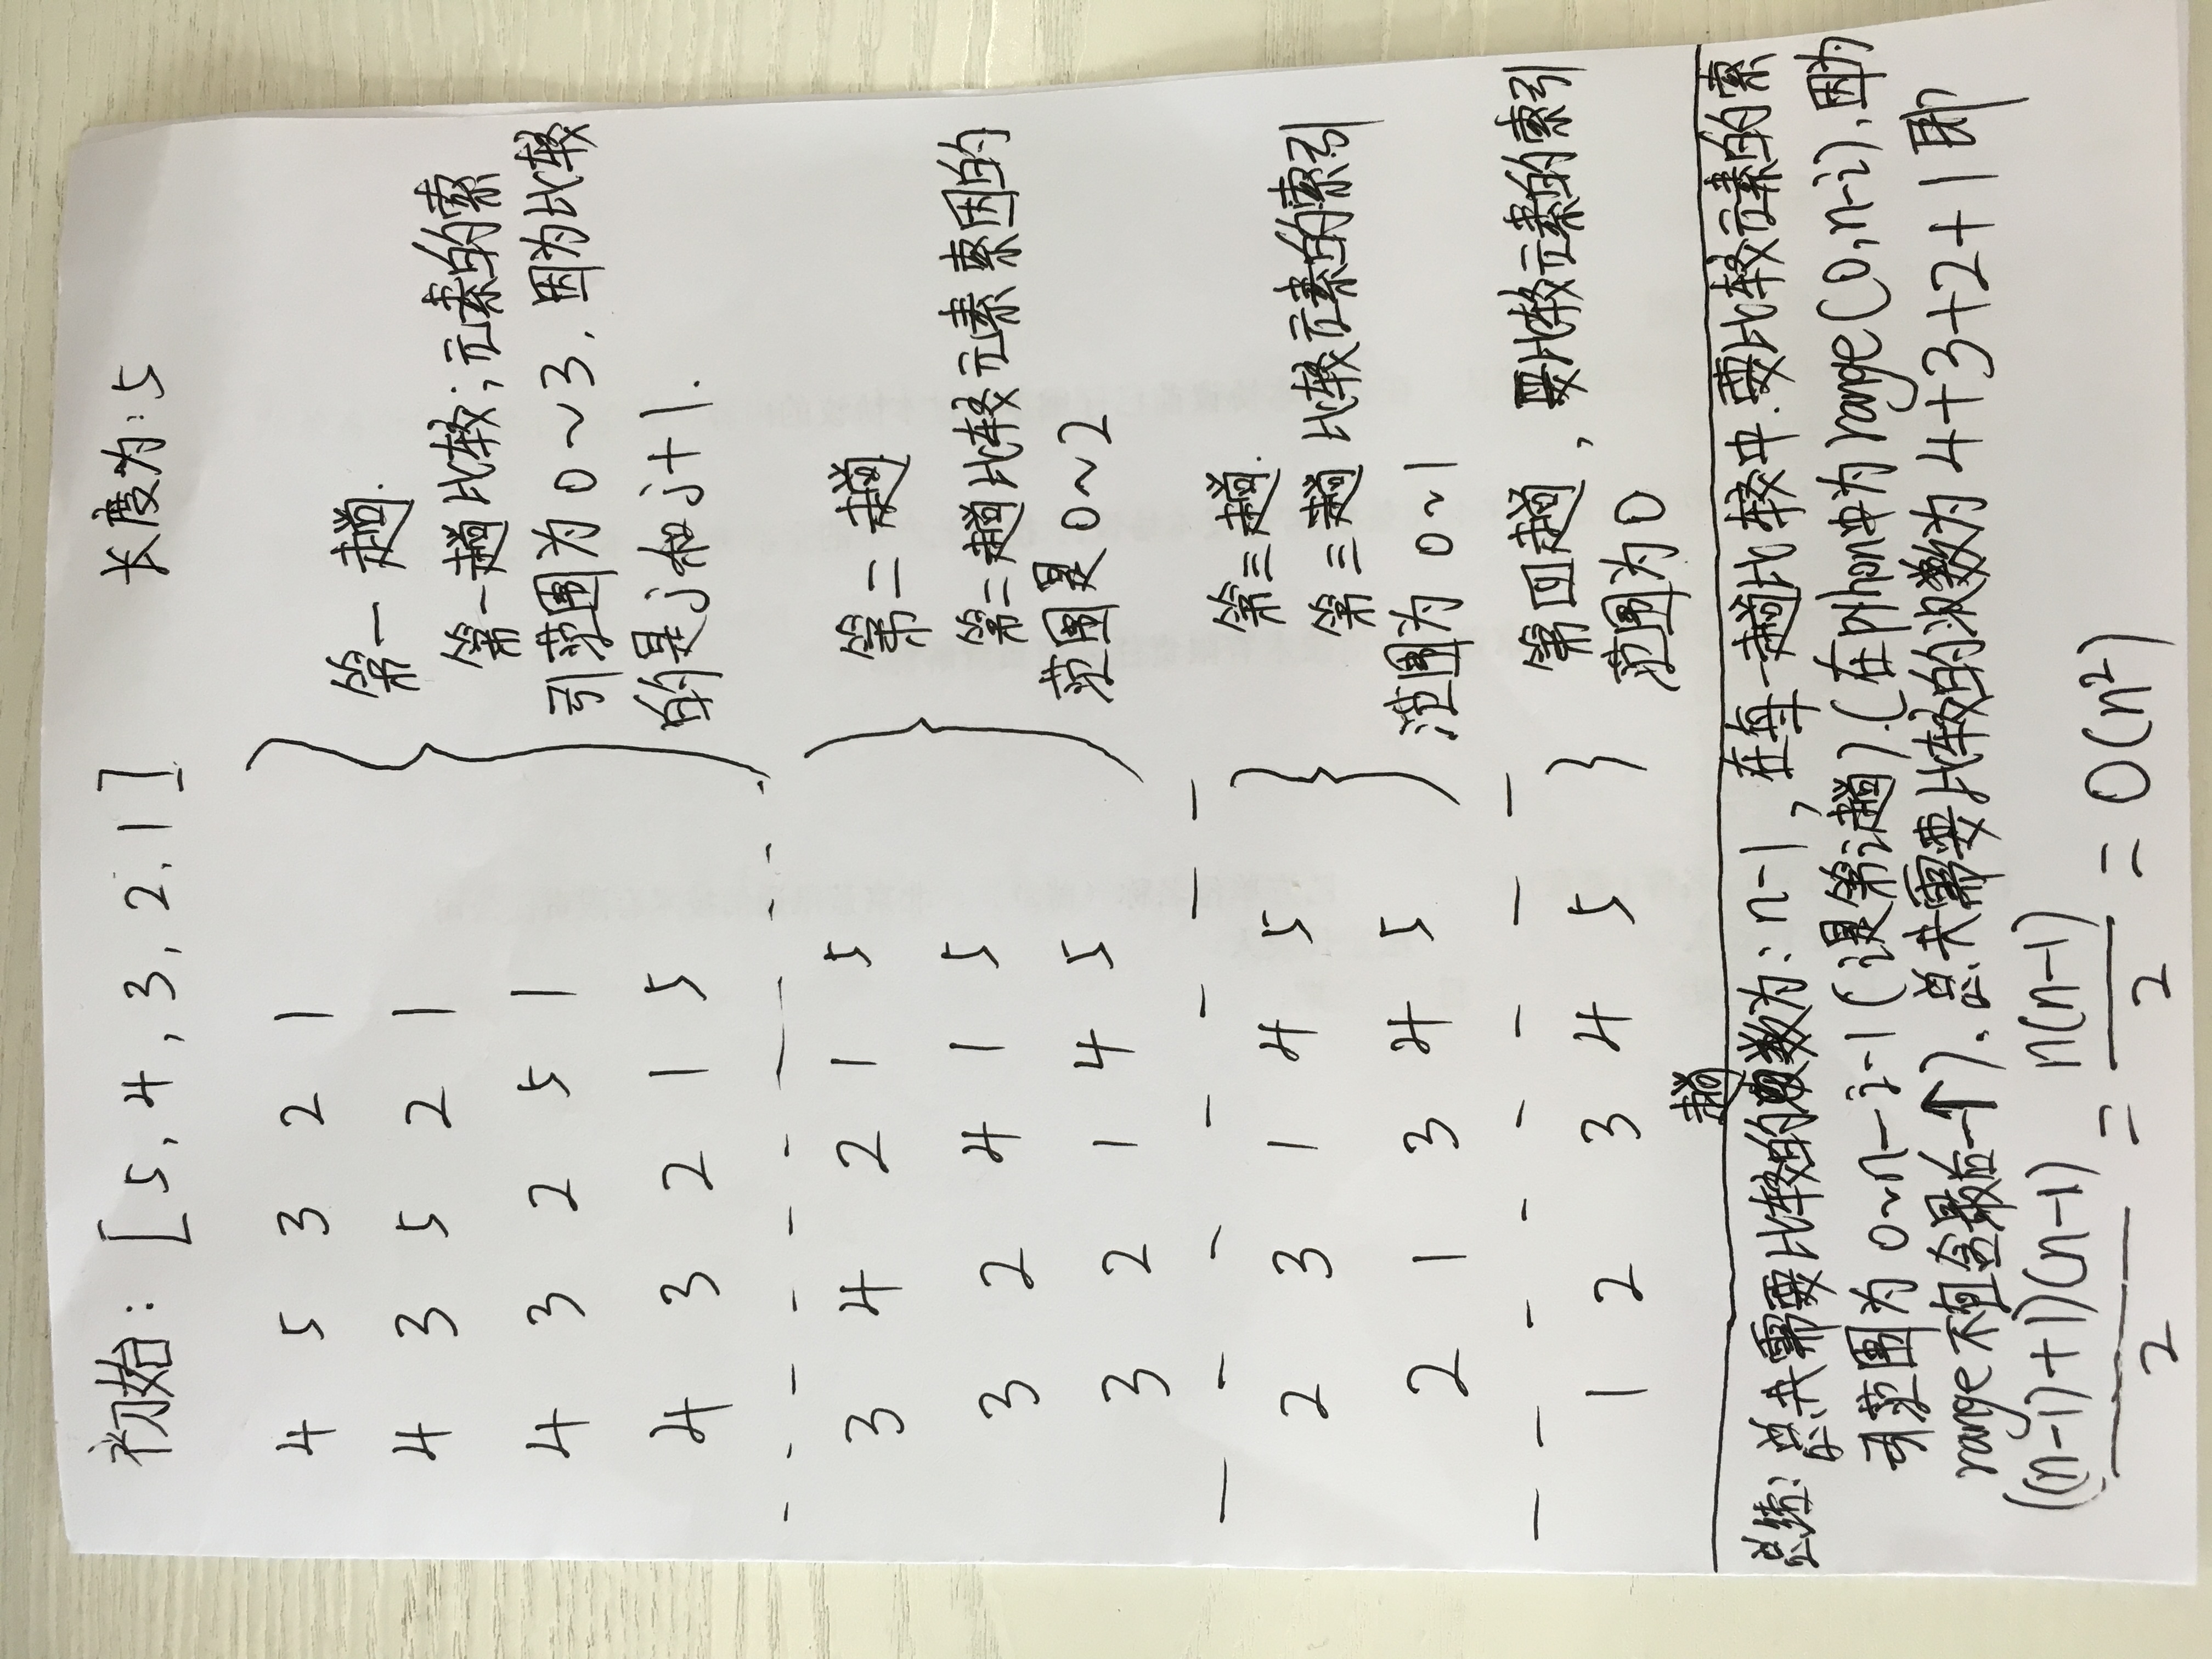 初始: [5, 4, 3, 2, 1] 长度为: 5
4 5 3 2 1
4 3 5 2 1
4 3 2 5 1
4 3 2 1 5
第一趟.
第一趟比较; 元素的索
引范围为 0~3, 因为比较
的是 j 和 j+1.
3 4 2 1 5
3 2 4 1 5
3 2 1 4 5
第二趟
第二趟比较元素索因的
范围是 0~2
2 3 1 4 5
2 1 3 4 5
第三趟.
第三趟比较元素的索引
范围为 0~1
1 2 3 4 5
第四趟, 要比较元素的索引
范围为 0
趟
总结: 总共需要比较的数为: n-1, 在每一趟比较中.要比较元素的索
引范围为 0~n-i-1 (i是第i趟).(在python中为range(0,n-i),因为
range不包含最后一个). 总共需要比较的次数为 4+3+2+1 即
((n-1)+1)(n-1)/2 = n(n-1)/2 = O(n²)